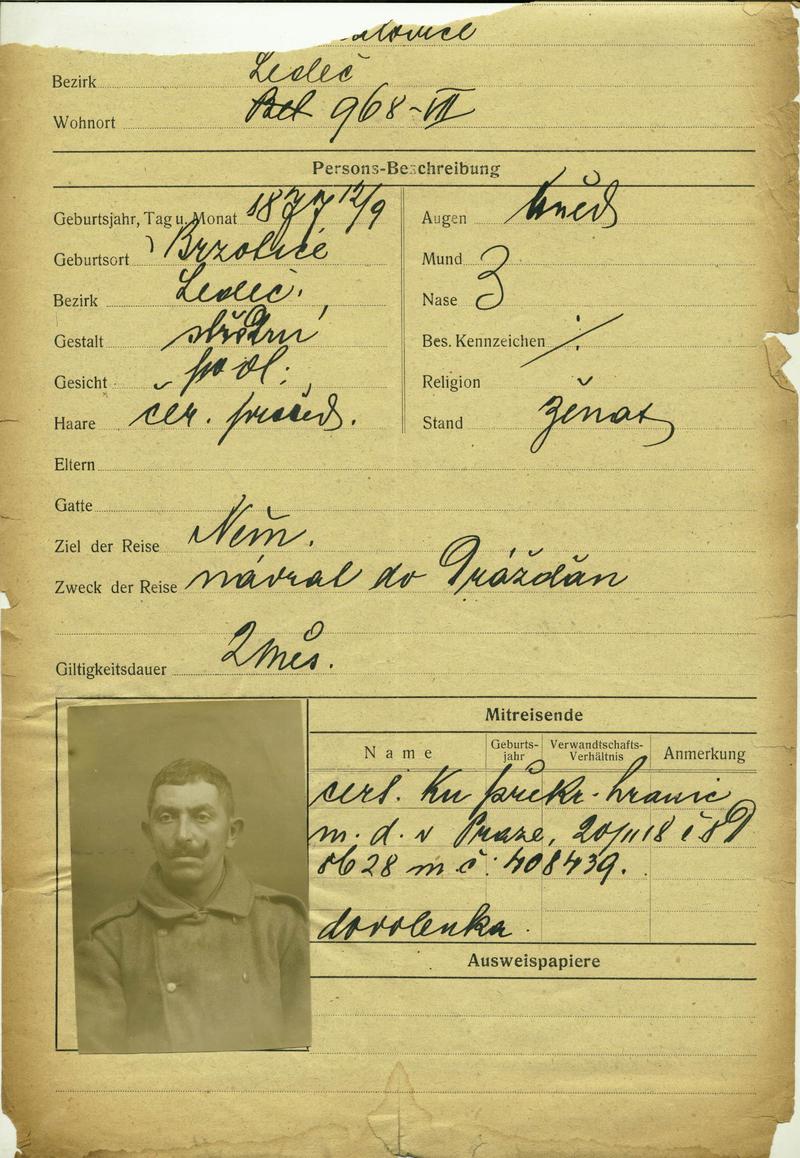 Bezirk Ledeč
Wohnort 968-VII
Persons-Beschreibung
Geburtsjahr, Tag u. Monat 1877 12/9
Geburtsort Brzotice
Bezirk Ledeč.
Gestalt střední
Gesicht podl.
Haare čer. prošed.
Augen hněd
Mund 3
Nase
Bes. Kennzeichen ⁒
Religion
Stand ženat
Eltern
Gatte
Ziel der Reise Něm.
Zweck der Reise návrat do Drážďan
Giltigkeitsdauer 2 měs.
Mitreisende
Name
Geburts-jahr
Verwandtschafts-Verhältnis
Anmerkung
cert. Ku překr. hranic
m. d. v Praze, 20/11 18 č
28 m č: 408439.
dovolenka
Ausweispapiere